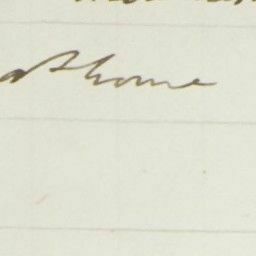 at home